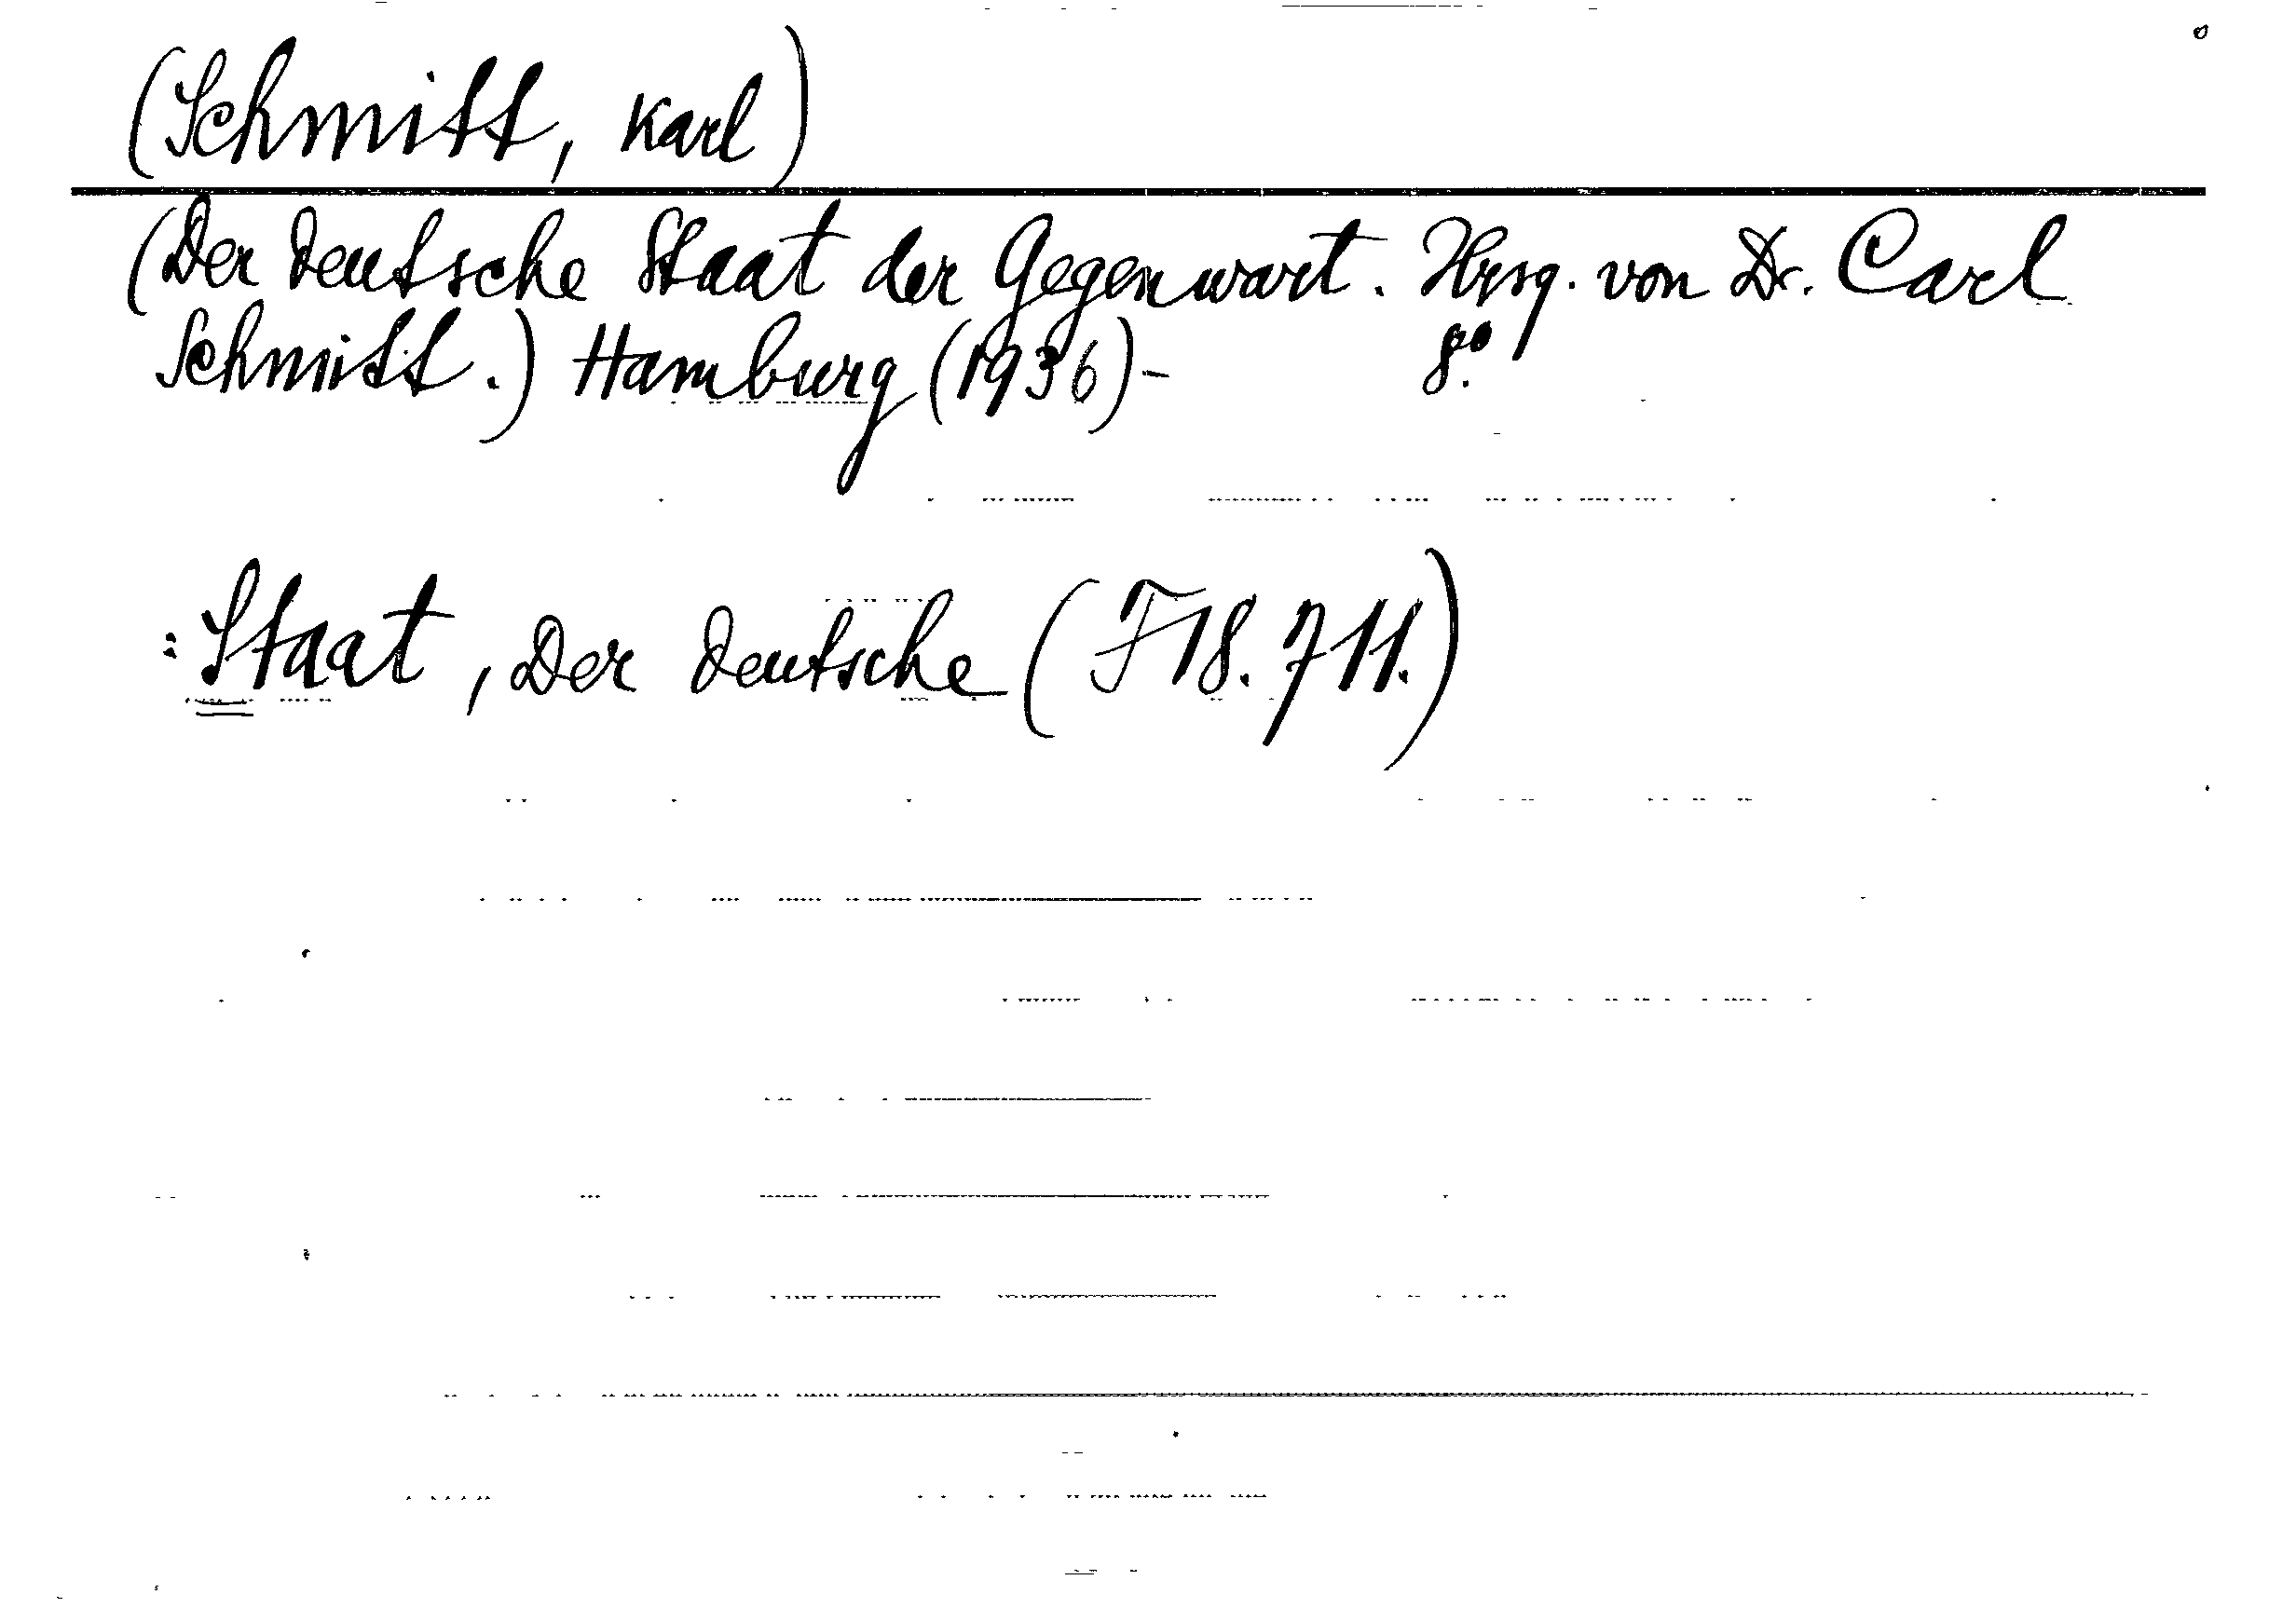 (Schmitt, Karl)
(Der deutsche Staat der Gegenwart. Hrsg. von Dr. Carl
Schmitt.) Hamburg (1936)- 8°.
: Staat, Der deutsche (F18.711.)